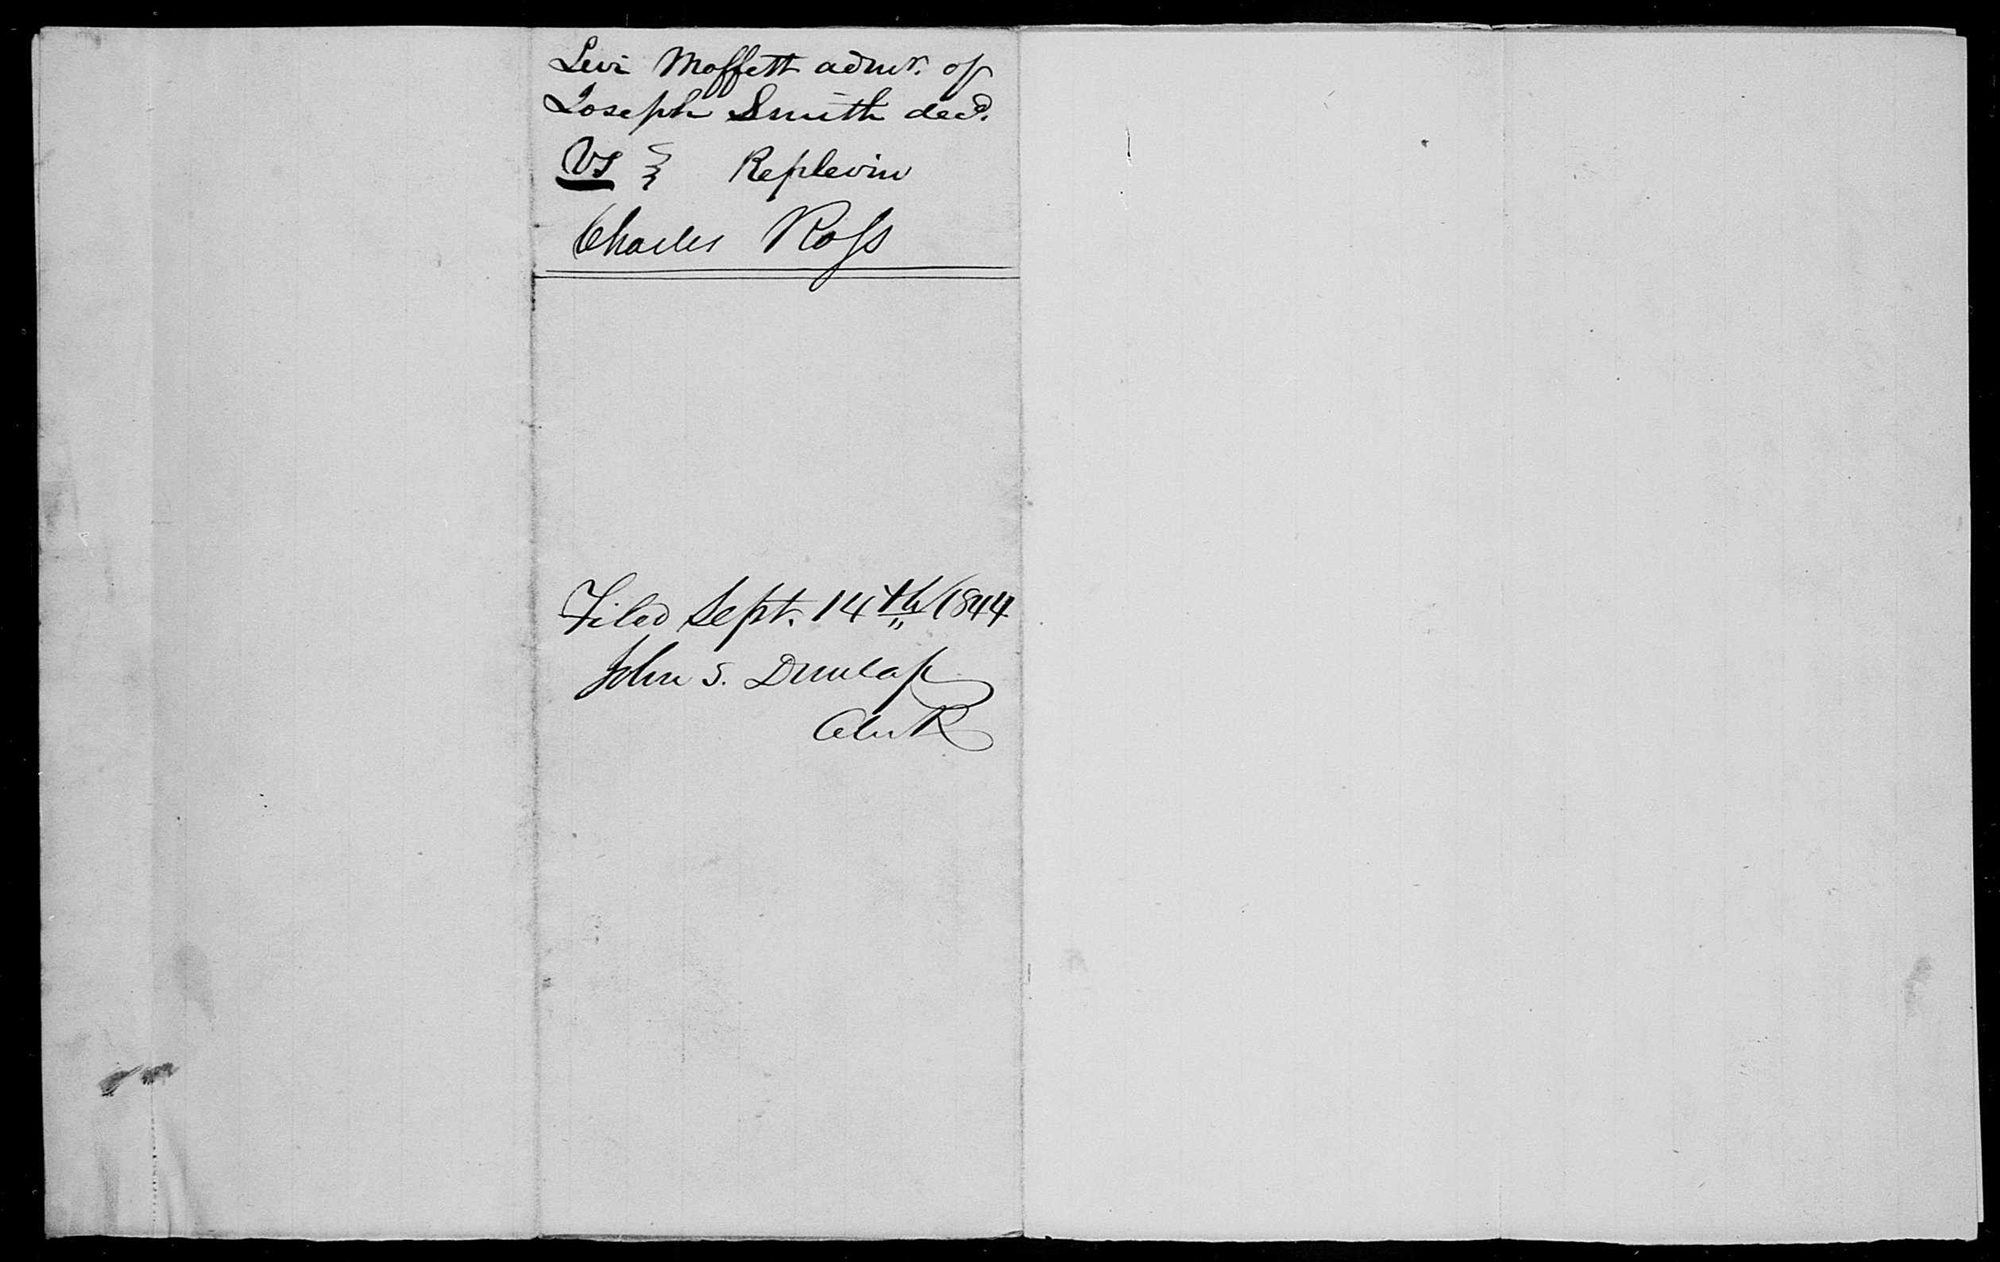 Levi Moffett admr. of
Joseph Smith decd.
Vs } Replevin
Charles Ross
Filed Sept. 14th 1844
John S. Dunlap
Clerk